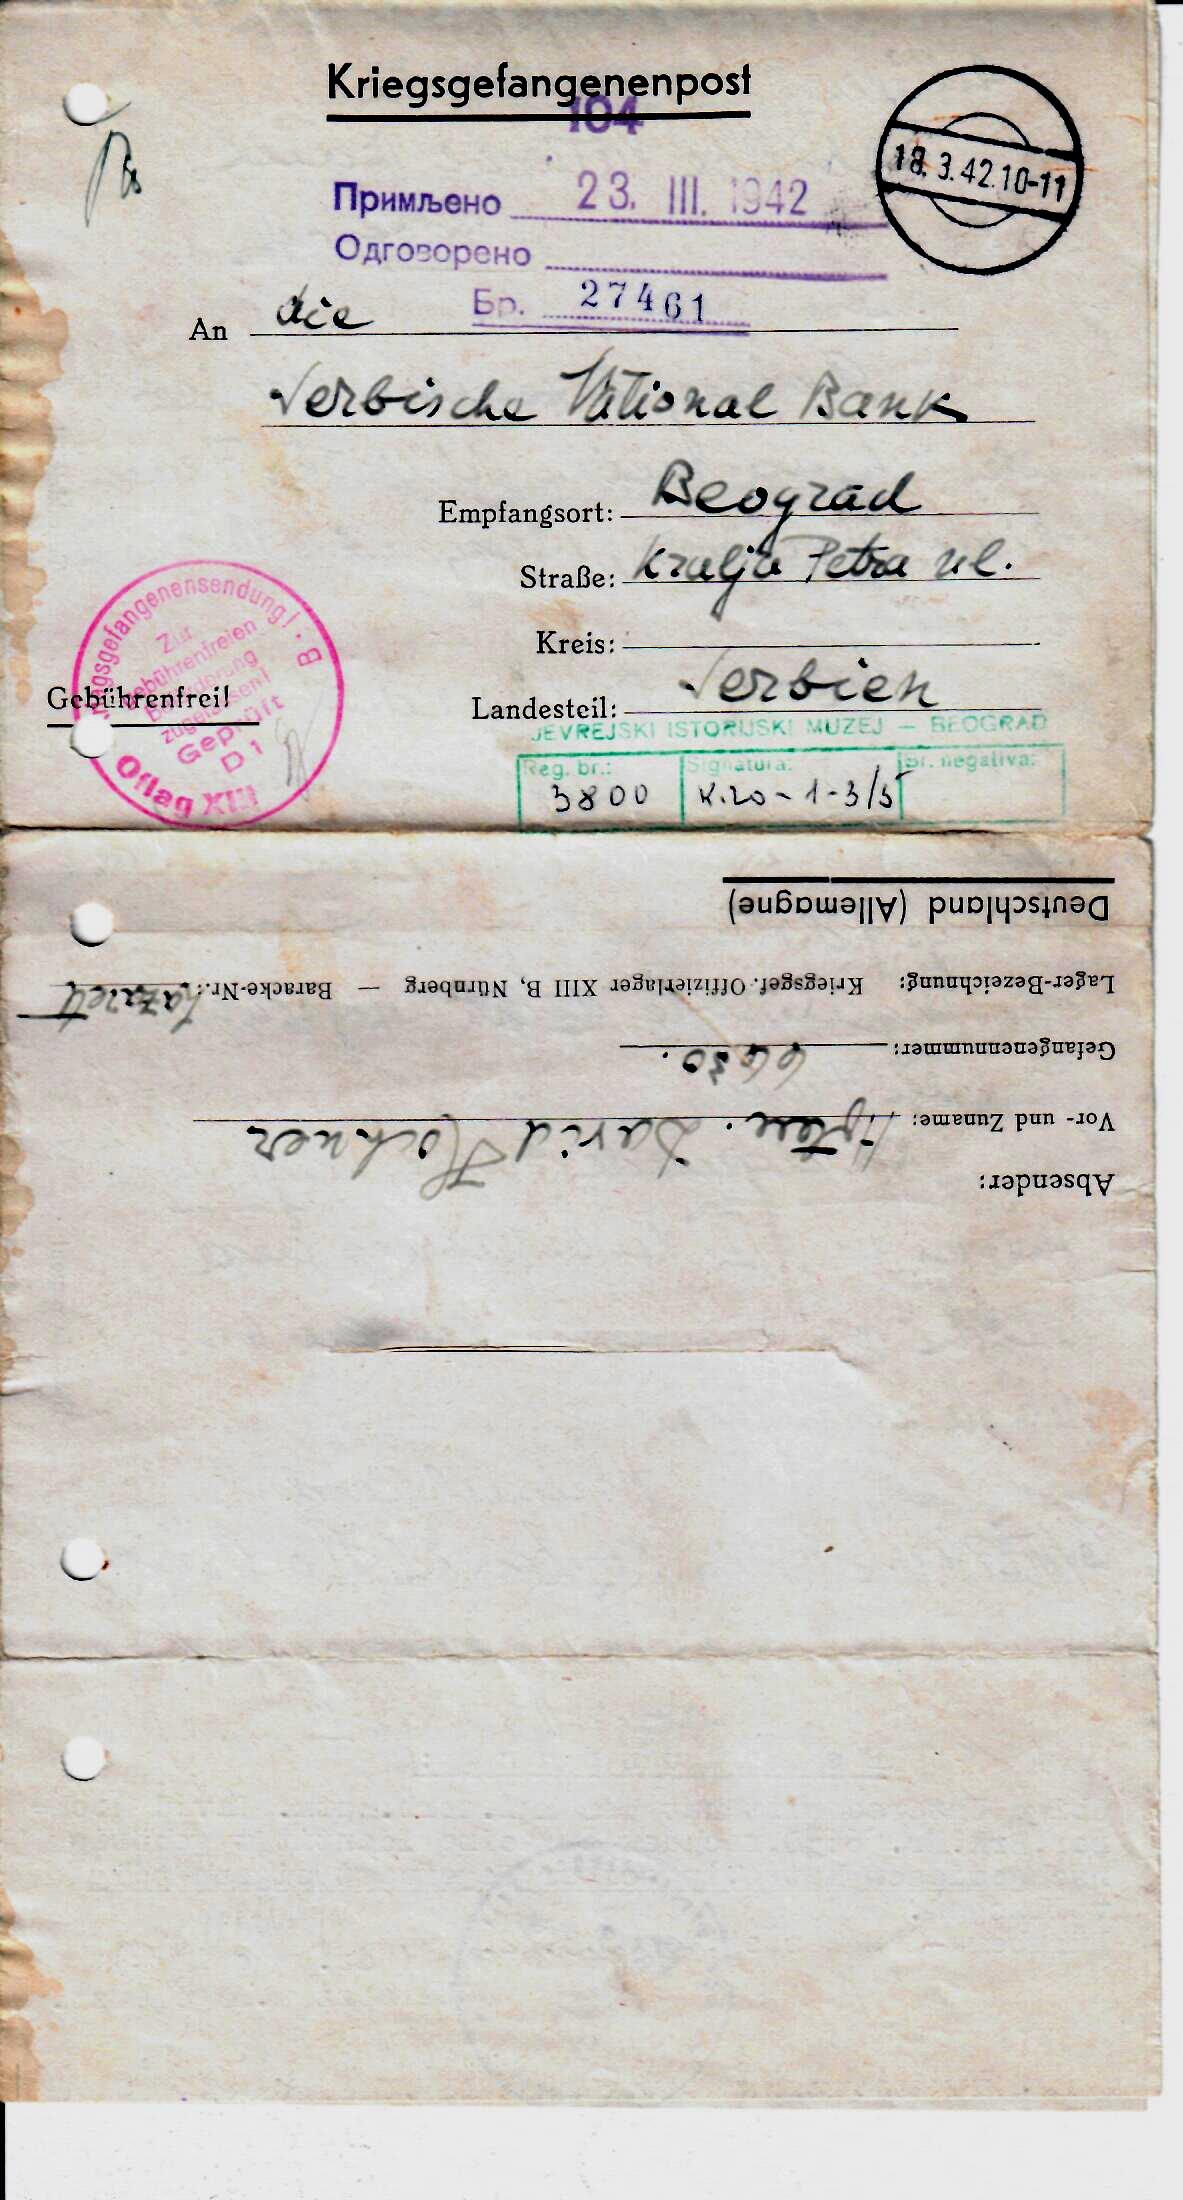 Kriegsgefangenenpost
104
18.3.42.10-11
Примљено 23. III. 1942
Одговорено
Бр. 27461
An die
Serbische National Bank
Empfangsort: Beograd
Straße: Kralja Petra ul.
Kreis:
Landesteil: Serbien
Kriegsgefangenensendung! · B
Zur
gebührenfreien
Beförderung
zugelassen!
Geprüft
D 1
Oflag XIII
Gebührenfrei!
JEVREJSKI ISTORIJSKI MUZEJ — BEOGRAD
Reg. br.: Signatura: Br. negativa:
3800 K.20-1-3/5
Absender:
Vor- und Zuname: David Hochner
Gefangenennummer: 6630.
Lager-Bezeichnung: Kriegsgef. Offizierlager XIII B, Nürnberg — Baracke-Nr.: Lazarett
Deutschland (Allemagne)